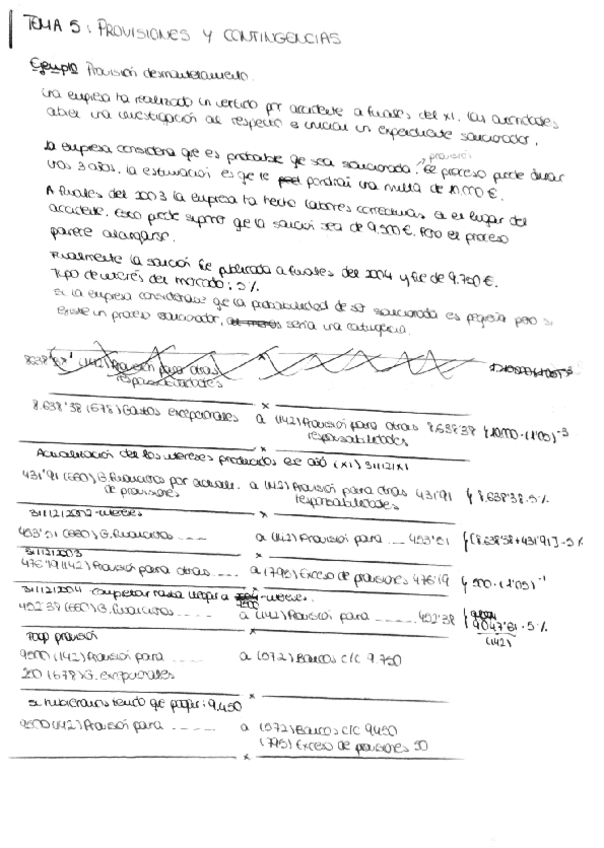 TEMA 5: PROVISIONES Y CONTINGENCIAS
Ejemplo Provisión desmantelamiento.
Una empresa ha realizado un vertido por accidente a finales del X1. Las autoridades
abren una investigación al respecto e inician un expediente sancionador.
La empresa considera que es probable que sea sancionada. El proceso puede durar
provisión
unos 3 años. La estimación es que le pondrán una multa de 10.000 €.
A finales del 2003 la empresa ha hecho labores correctivas en el lugar del
accidente. Esto puede suponer que la sanción sea de 9.500 €. Pero el proceso
parece alargarse.
Finalmente la sanción fue publicada a finales del 2004 y fue de 9.750 €.
Tipo de interés del mercado: 5%
Si la empresa considerase que la probabilidad de ser sancionada es pequeña pero
existe un proceso sancionador, sería una contingencia.
(142) Provisión para otras
responsabilidades
8.638'38 (678) Gastos excepcionales a (142) Provisión para otras 8.638'38 10.000 · (1'05)⁻³
responsabilidades
Actualización de los intereses producidos ese año (X1) 31/12/X1
431'91 (660) G. financieros por actualiz. a (142) Provisión para otras 431'91 8.638'38 · 5%
de provisiones responsabilidades
31/12/2002 - intereses
453'51 (660) G. financieros ---- a (142) Provisión para --- 453'51 [8.638'38 + 431'91] · 5%
31/12/2003
476'19 (142) Provisión para otras --- a (795) Exceso de provisiones 476'19 500 · (1'05)⁻¹
31/12/2004 completar hasta llegar a 9500 - intereses.
452'38 (660) G. financieros ---- a (142) Provisión para ---- 452'38 9047'61 · 5%
(142)
Pago provisión
9500 (142) Provisión para ---- a (572) Bancos c/c 9.750
250 (678) G. excepcionales
Si hubiéramos tenido que pagar: 9.450
9500 (142) Provisión para ----- a (572) Bancos c/c 9450
(795) Exceso de provisiones 50